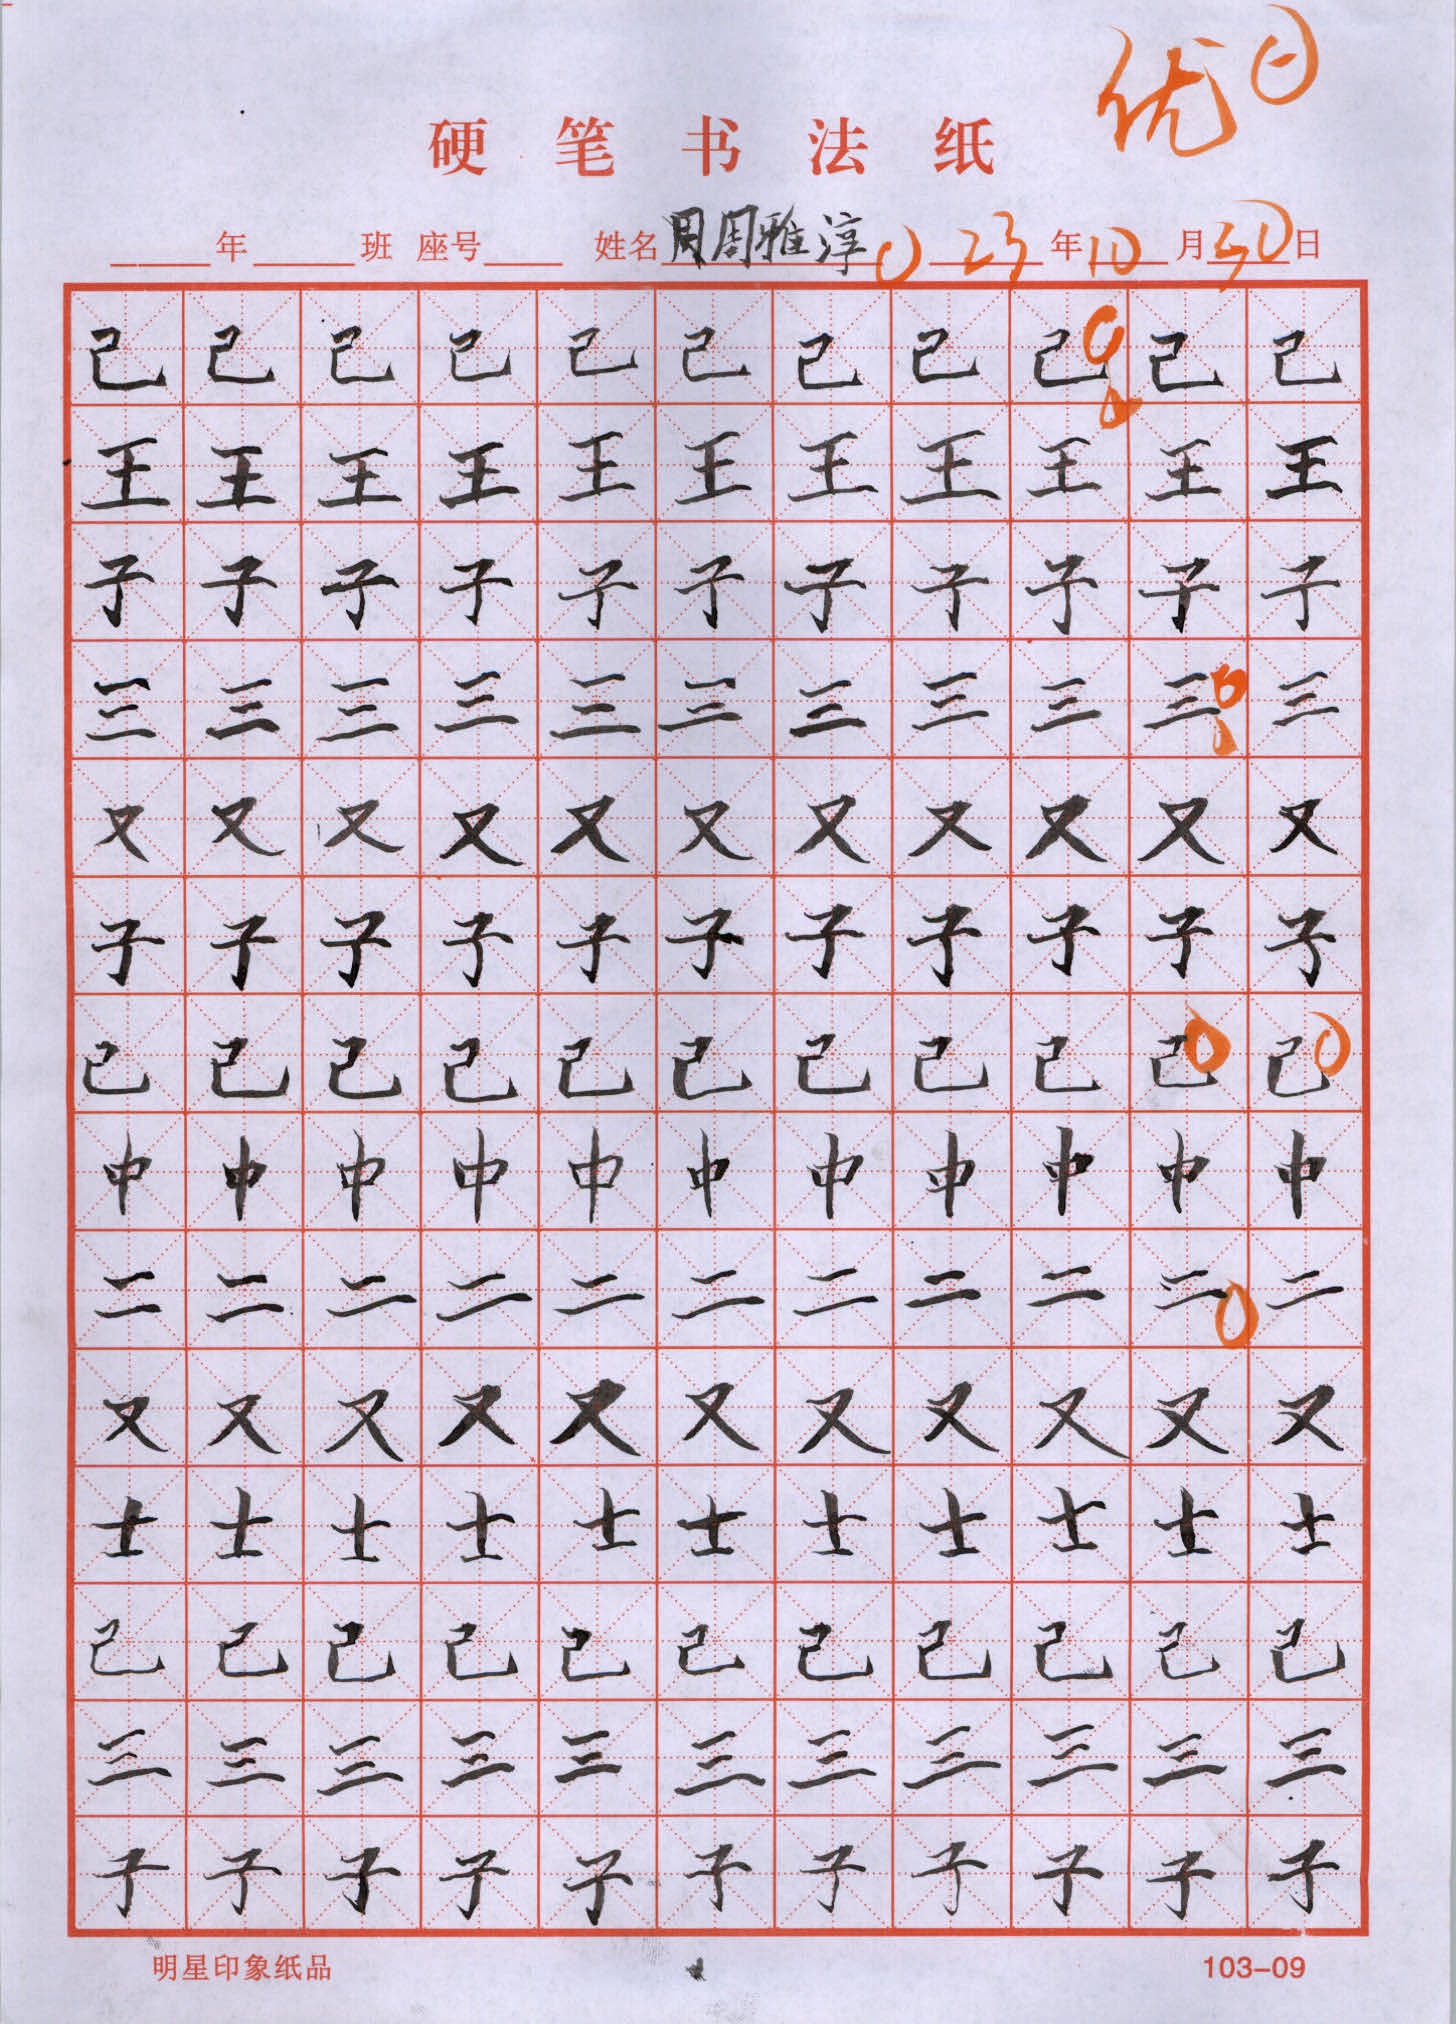 优
硬笔书法纸
年 班 座号 姓名 周周雅淳 23年10月30日
己己己己己己己己己己己
王王王王王王王王王王王
子子子子子子子子子子子
三三三三三三三三三三三
又又又又又又又又又又又
子子子子子子子子子子子
己己己己己己己己己己己
中中中中中中中中中中中
二二二二二二二二二二二
又又又又又又又又又又又
士士士士士士士士士士士
己己己己己己己己己己己
三三三三三三三三三三三
子子子子子子子子子子子
明星印象纸品 103-09